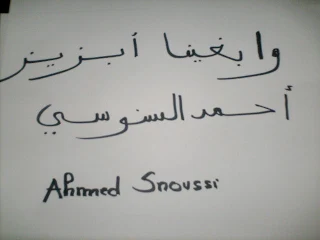 وا بغينا أبزيز
أحمد السنوسي
Ahmed Snoussi